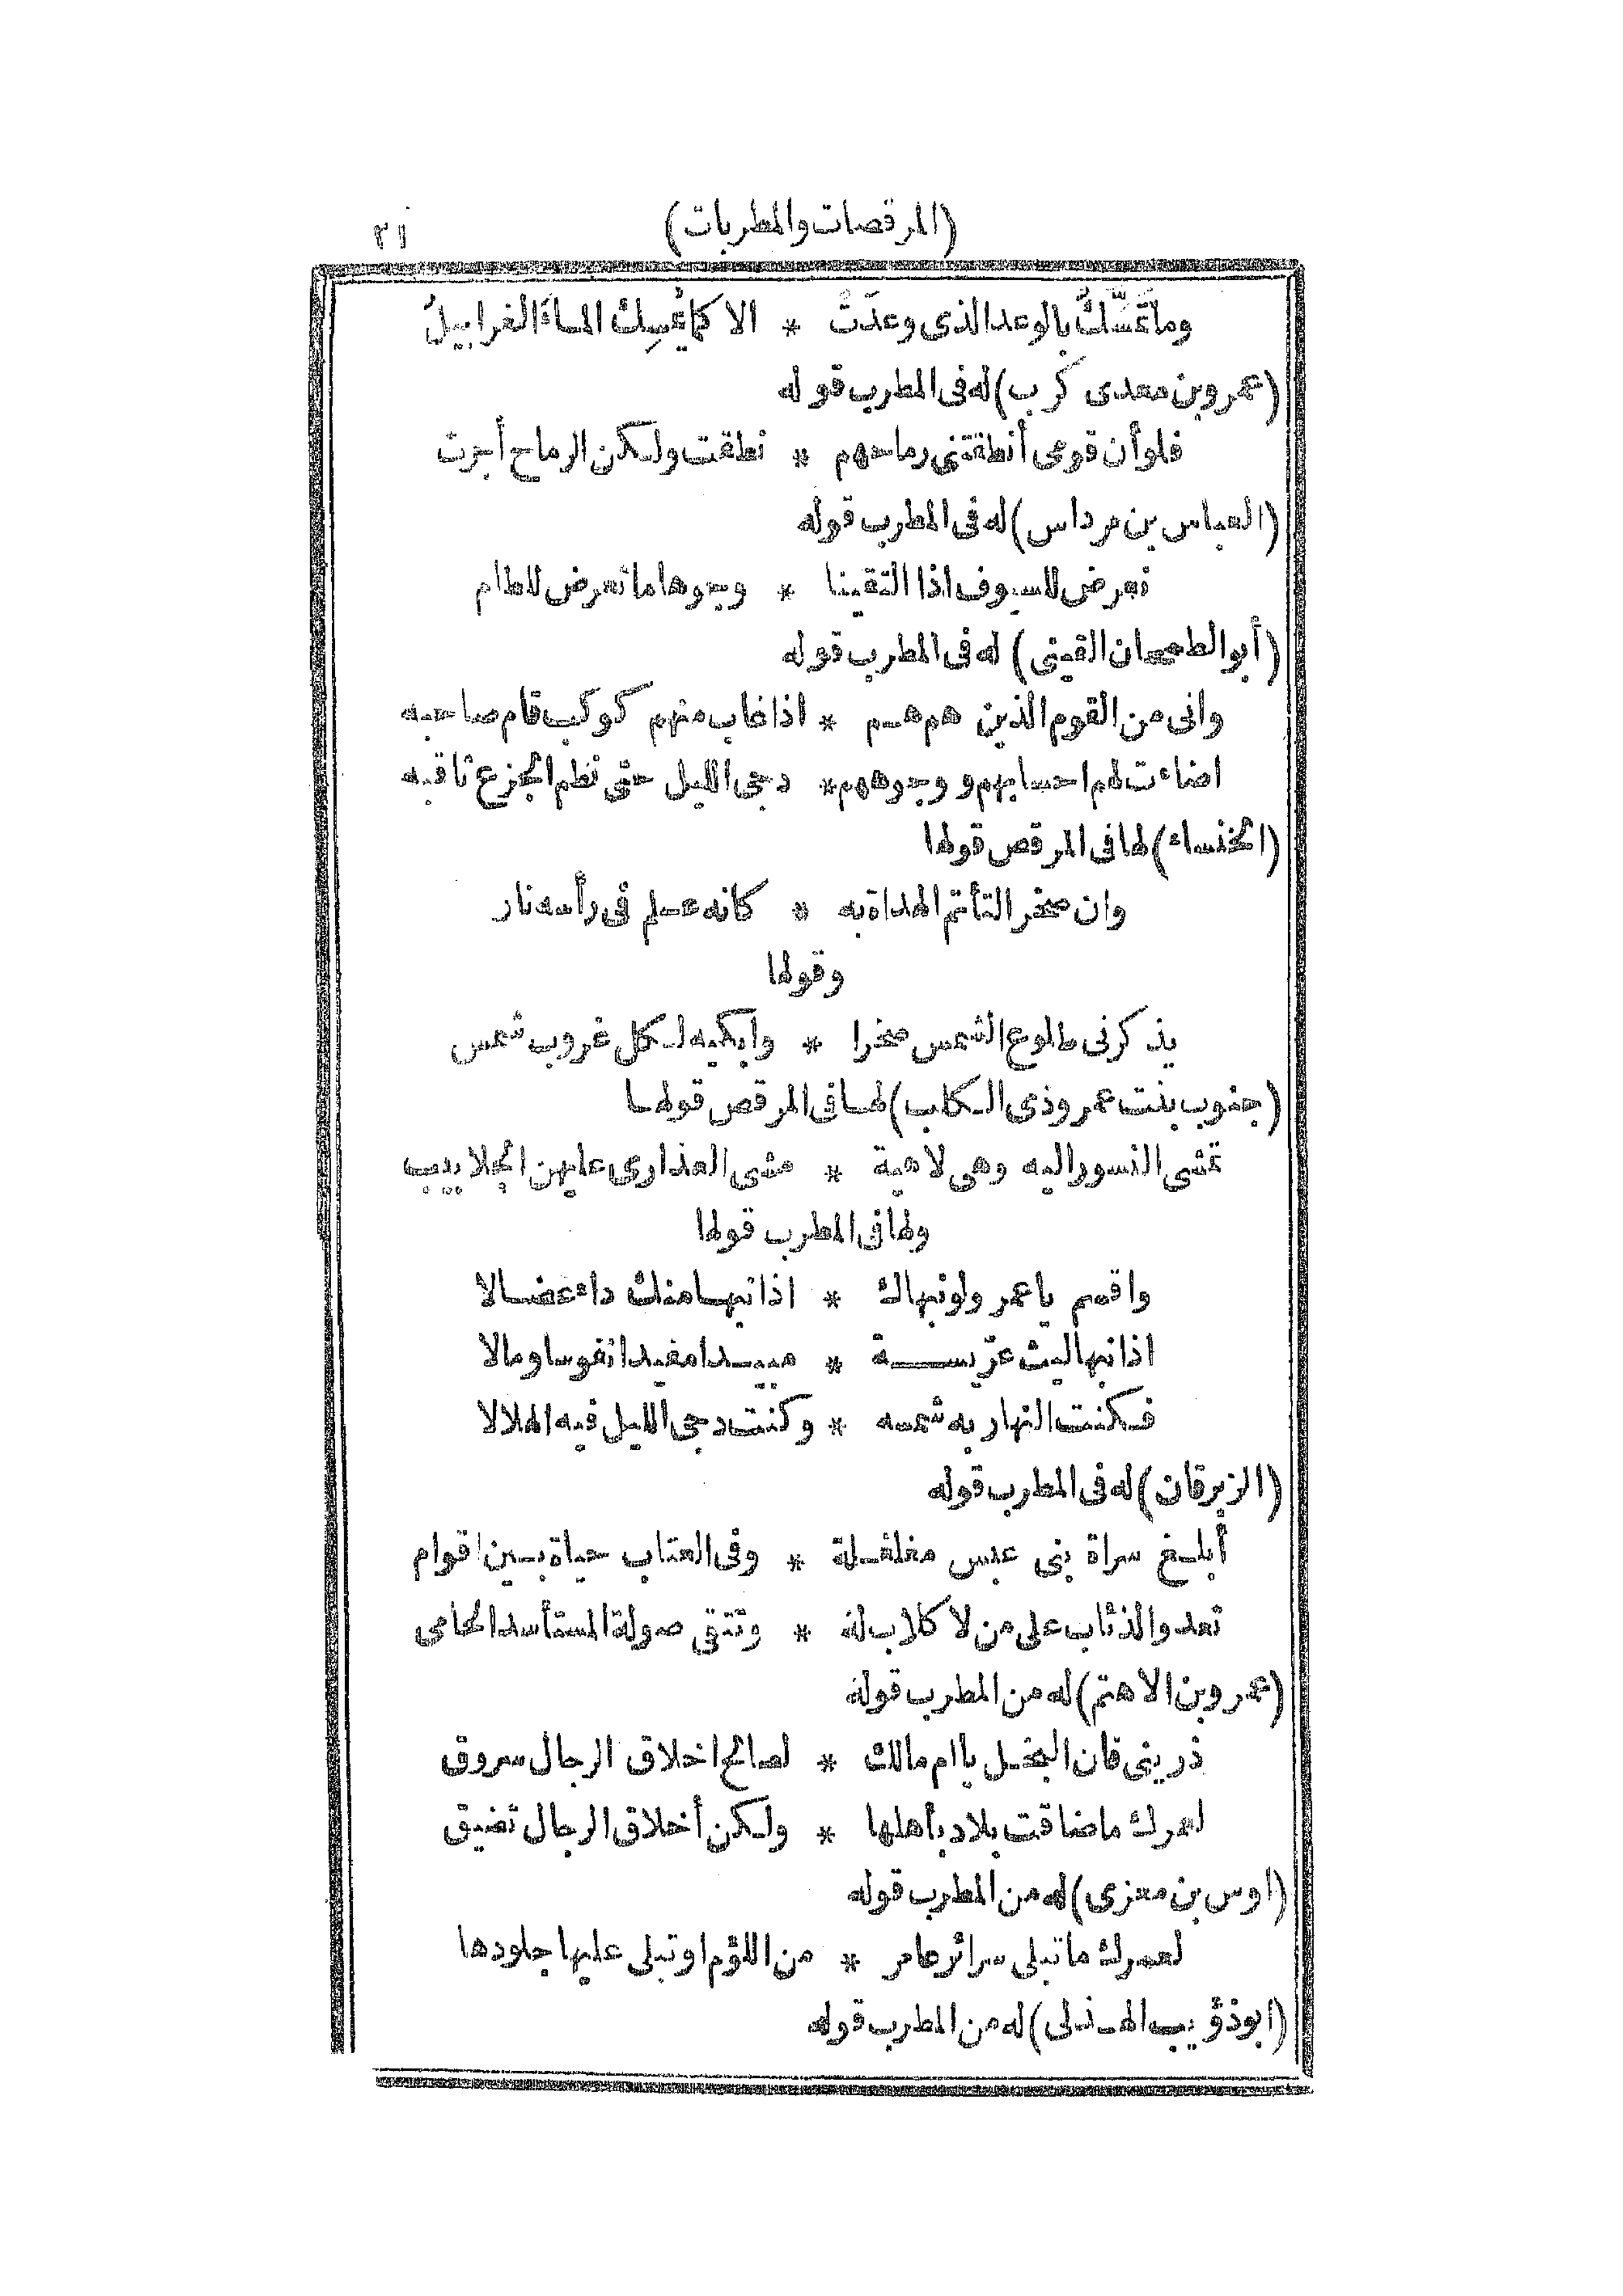 (المرقصات والمطربات)
٢١
وما تَمَسَّكُ بالوعد الذى وعَدَتْ * الا كما يُمسِك الماءَ الغرابيلُ
(عمرو بن معدى كرب) له فى المطرب قوله
فلو أن قومى أنطقتنى رماحهم * نطقت ولكن الرماح أجرت
(العباس بن مرداس) له فى المطرب قوله
نعرض للسيوف اذا التقينا * وجوها ما تعرض للطام
(أبو الطمحان القينى) له فى المطرب قوله
وانى من القوم الذين هم هم * اذا غاب منهم كوكب قام صاحبه
اضاءت لهم احسابهم ووجوههم * دجى الليل حتى نظم الجزع ثاقبه
(الخنساء) لها فى المرقص قولها
وان صخر التأتم الهداة به * كانه علم فى رأسه نار
وقولها
يذكرنى طلوع الشمس صخرا * وابكيه لكل غروب شمس
(جنوب بنت عمرو ذى الكلب) لها فى المرقص قولها
تمشى النسور اليه وهى لاهية * مشى العذارى عليهن الجلابيب
ولها فى المطرب قولها
واقسم يا عمر ولو نبهاك * اذا نبها منك داء عضالا
اذا نبها ليث عرّيسة * مبيدا مفيدا نفوسا ومالا
فكنت النهار به شمسه * وكنت دجى الليل فيه الهلالا
(الزبرقان) له فى المطرب قوله
أبلغ سراة بنى عبس مغلغلة * وفى العتاب حياة بين اقوام
تعدو الذئاب على من لا كلاب له * وتتقى صولة المستأسد الحامى
(عمرو بن الاهتم) له من المطرب قوله
ذرينى فان البخل يا ام مالك * لصالح اخلاق الرجال سروق
لعمرك ما ضاقت بلاد بأهلها * ولكن أخلاق الرجال تضيق
(اوس بن معزى) له من المطرب قوله
لعمرك ما تبلى سرائر عامر * من اللؤم او تبلى عليها جلودها
(ابو ذؤيب الهذلى) له من المطرب قوله